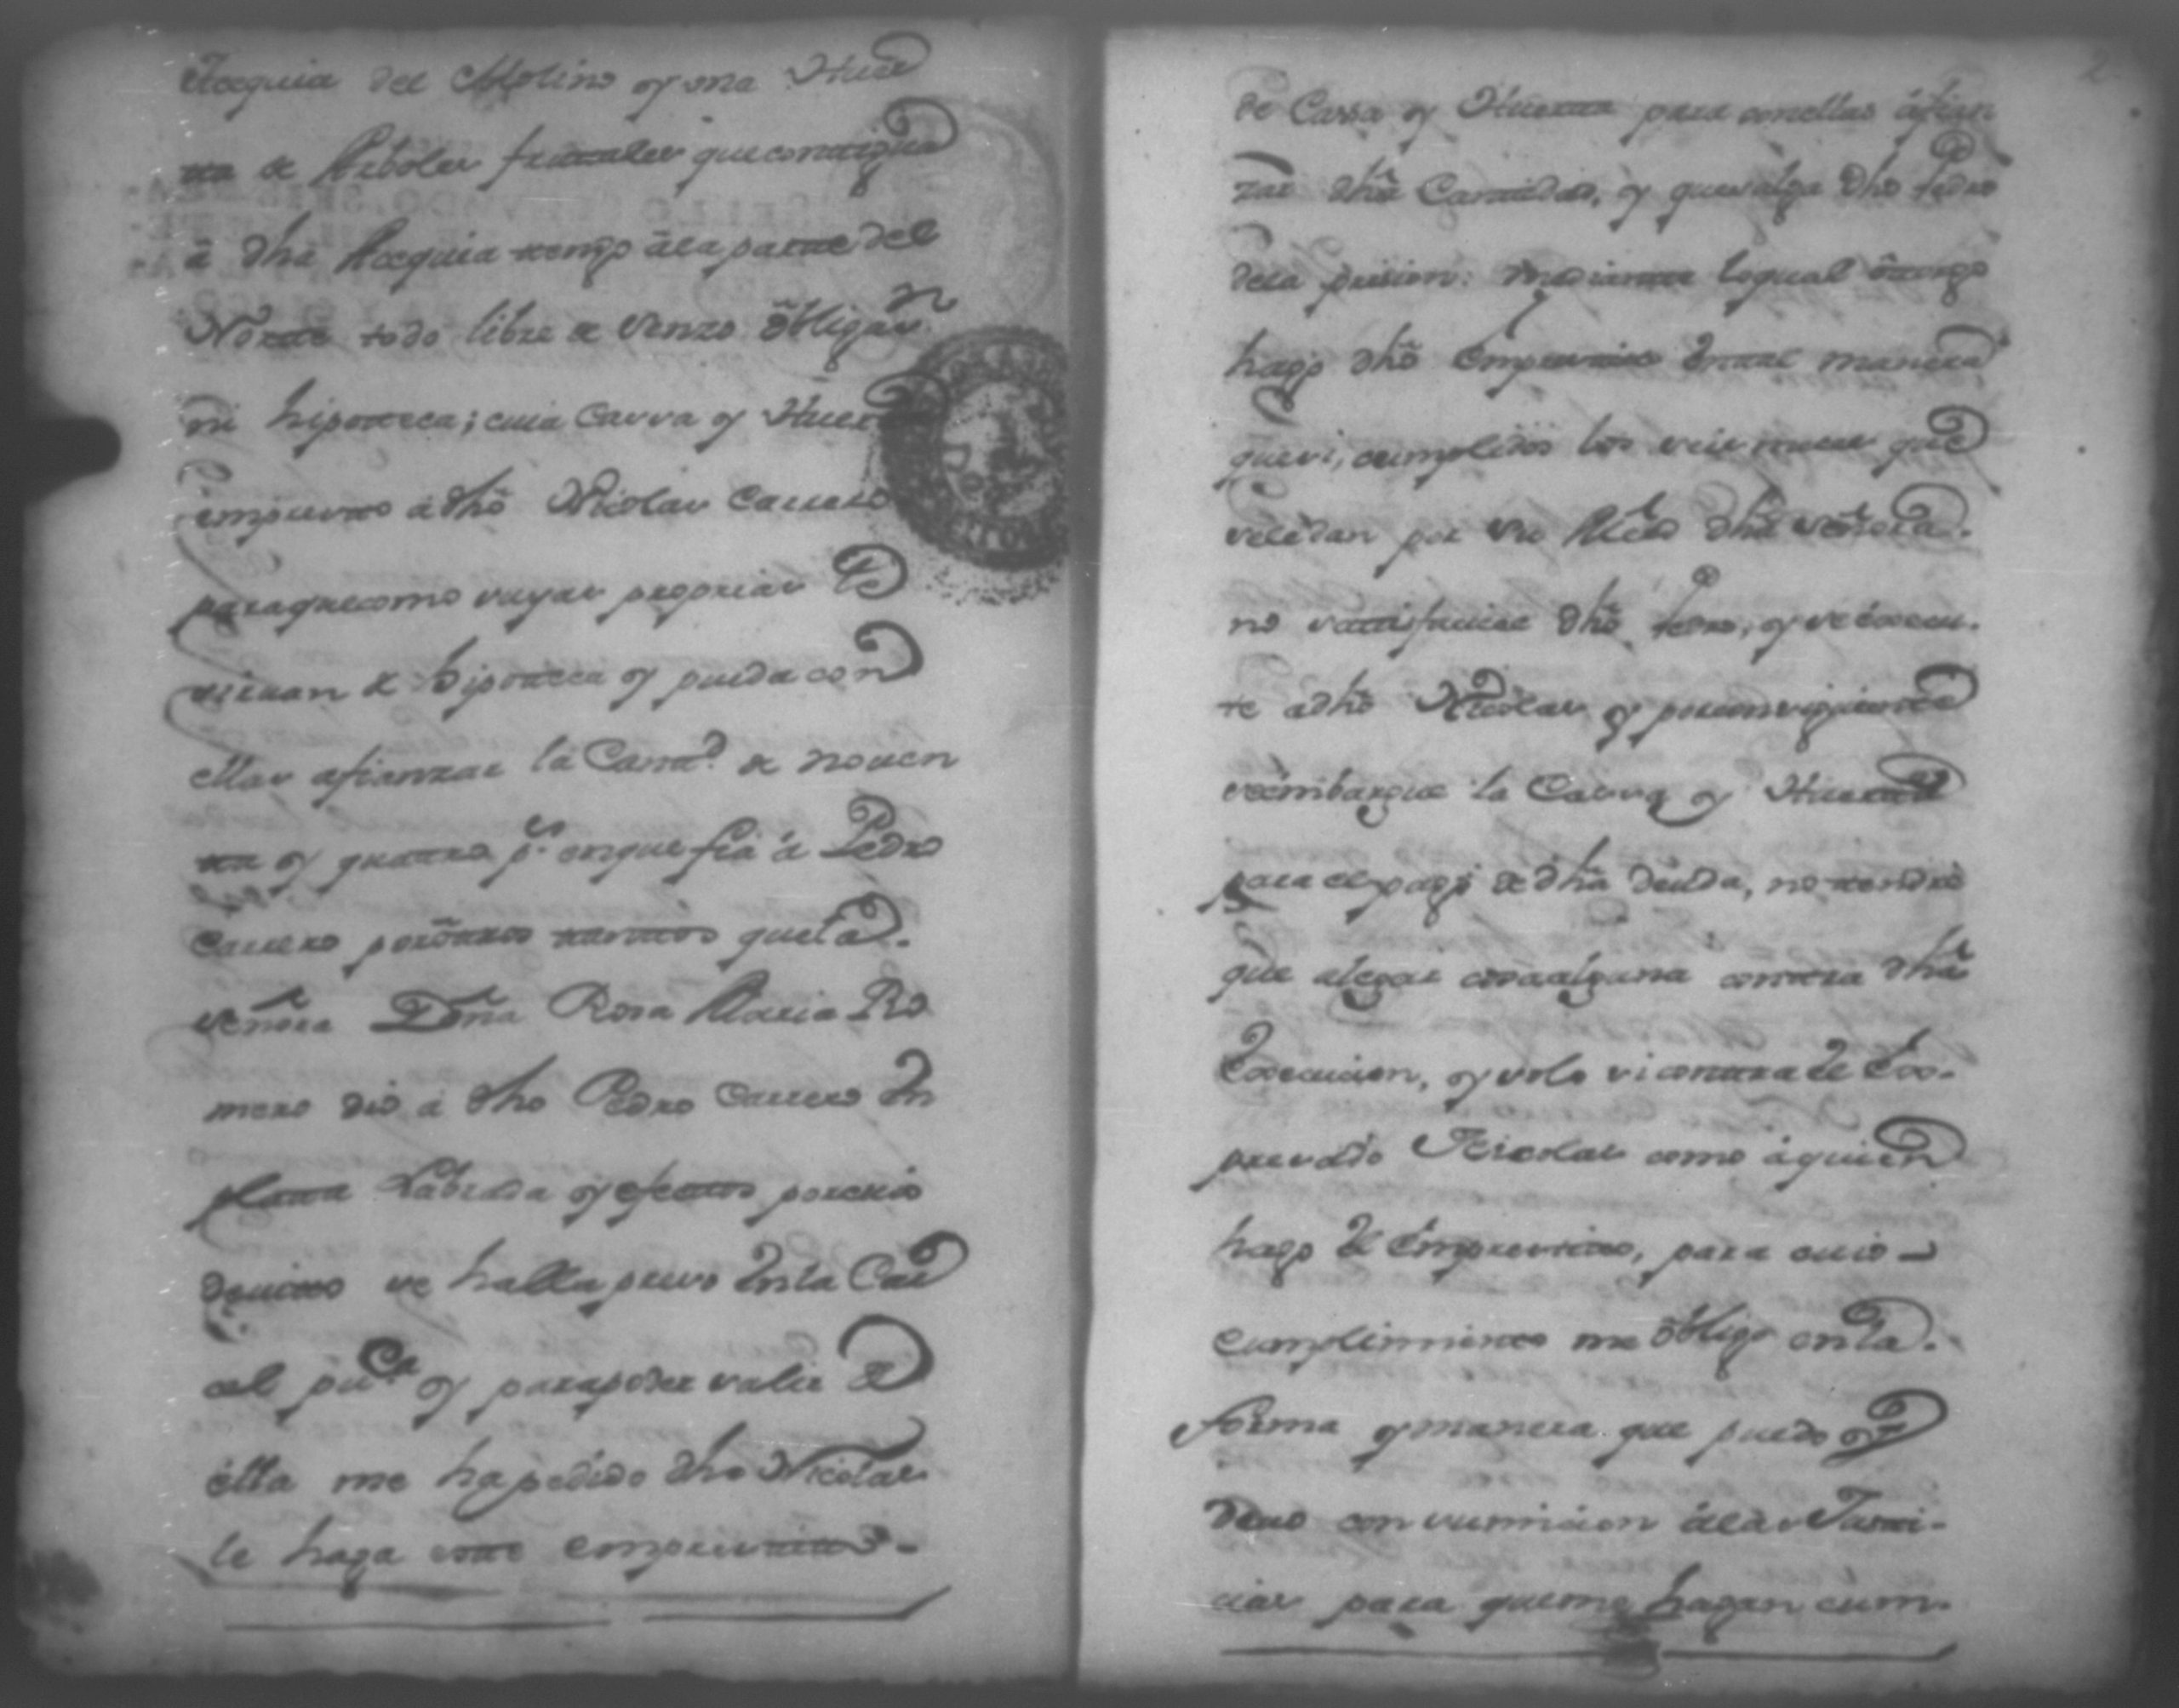 Acequia del Molino y una Huer
ta de Arboles frutales que contigua
â dha Acequia tengo âla parte del
Norte todo libre de Senzo ôbligaⁿ
ni hipoteca; cuia Cassa y Huerta
empresto â dhô Nicolas Carrero
paraquecomo suyas proprias le
sirvan de hipoteca y pueda con
ellas afianzar la Cantᵈ. de noven
ta y quatro pˢ. enque fia â Pedro
Carrero porôtros tantos quela.
señora Dnã Rosa Maria Ro
mero dio â dho Pedro Carrero En
plata Labrada y efectos, porcuio
devito se halla preso Enla Car
cel puᶜᵃ y parapoder salir de
élla me ha pedido dho Nicolas
le haga este emprestito.
2
de Cassa y Huerta para conellas áfian
zar dhâ Cantidad, y quesalga dho Pedro
dela prision: Mediante loqual ôtorgo
hago dhô Emprestito Ental manera
quesi, cumplidos los seis meses que
sele dan por su dhâ señora.
no sattisfaciere dhô Pedro, y se éxecu.
te adhô Nicolas y porconsiguiente
seêmbargue la Cassa y Huerta
para el pago de dhâ deuda, no tendrè
que alegar cosaalguna contra dhâ
Execucion, y solo si contra él Ex-
presado Nicolas como âquien
hago él Emprestito, para cuio
cumplimiento me ôbligo enla.
forma y manera que puedo y
devo con sumicion âlas Justi-
cias para queme hagan cum-